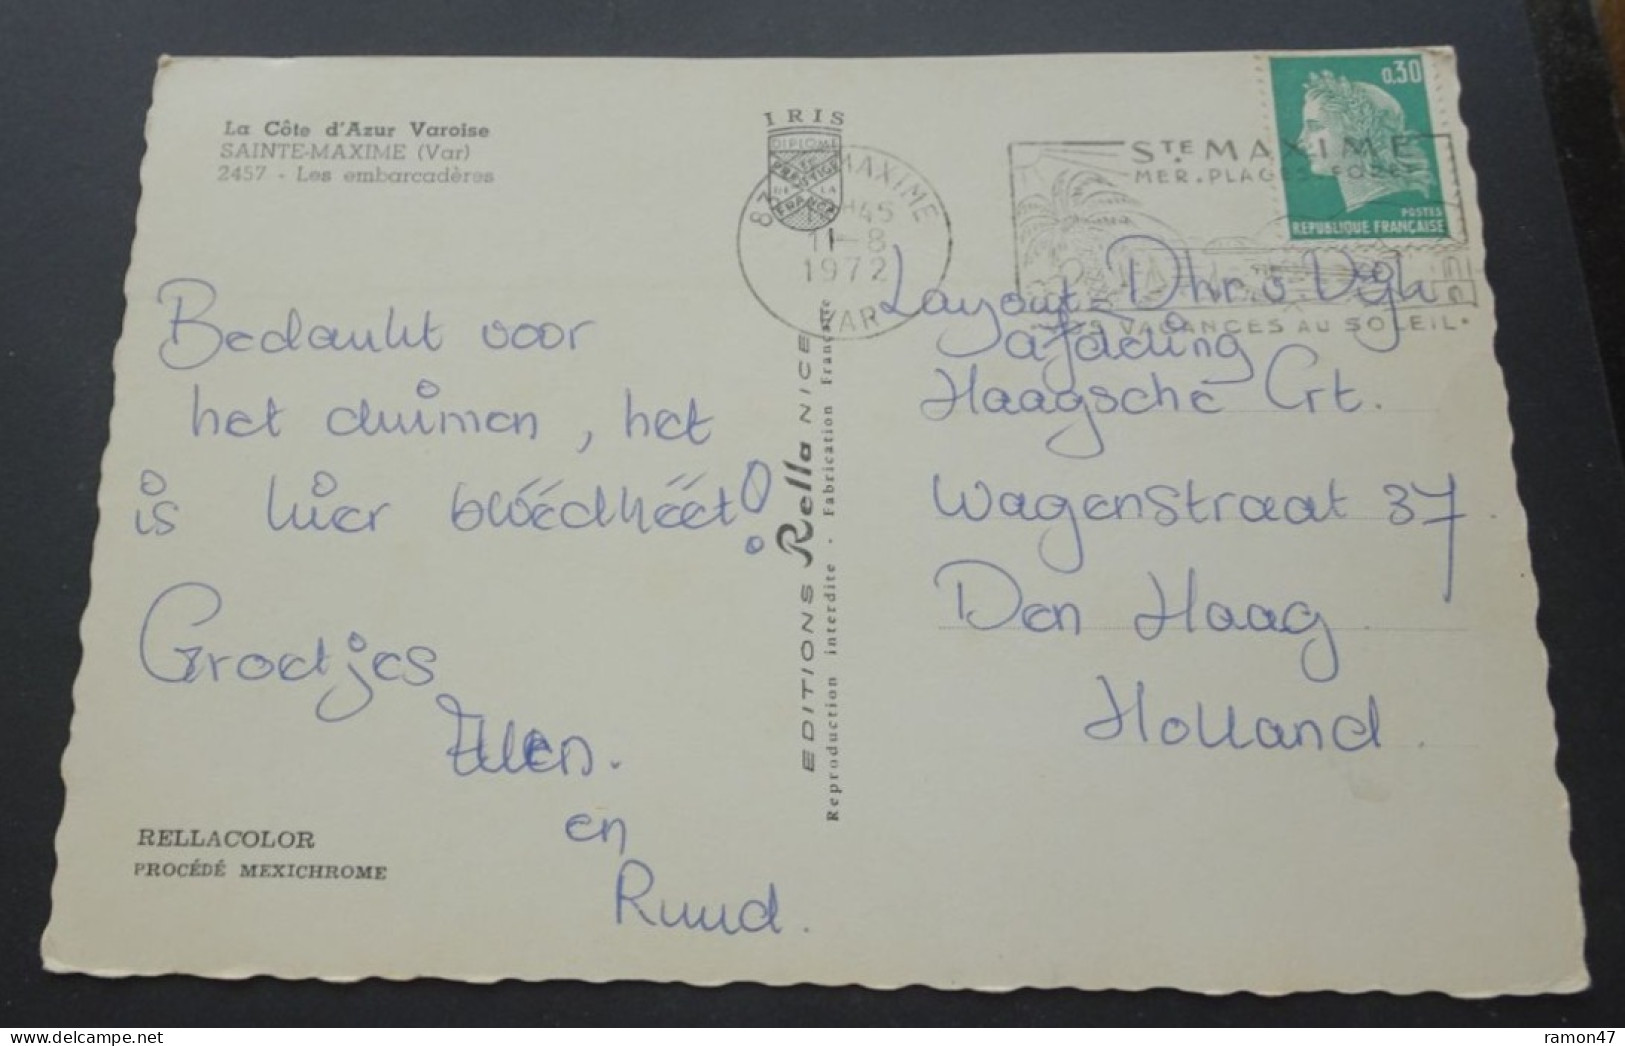 La Côte d'Azur Varoise
SAINTE-MAXIME (Var)
2457 - Les embarcadères
IRIS
DIPLOME
PRESTIGE
DE LA
FRANCE
83 MAXIME
11-8
1972
VAR
STE MAXIME
MER.PLAGES.FORET
VACANCES AU SOLEIL.
0,30
POSTES
REPUBLIQUE FRANÇAISE
Bedankt voor
het duimen, het
is hier bloedheet!
Groetjes
Ellen.
en
Ruud.
RELLACOLOR
PROCÉDÉ MEXICHROME
EDITIONS Rella NICE
Reproduction interdite - Fabrication Française
Layout- Dhr. v Dijk
afdeling
Haagsche Crt.
Wagenstraat 37
Den Haag
Holland.
ramon47